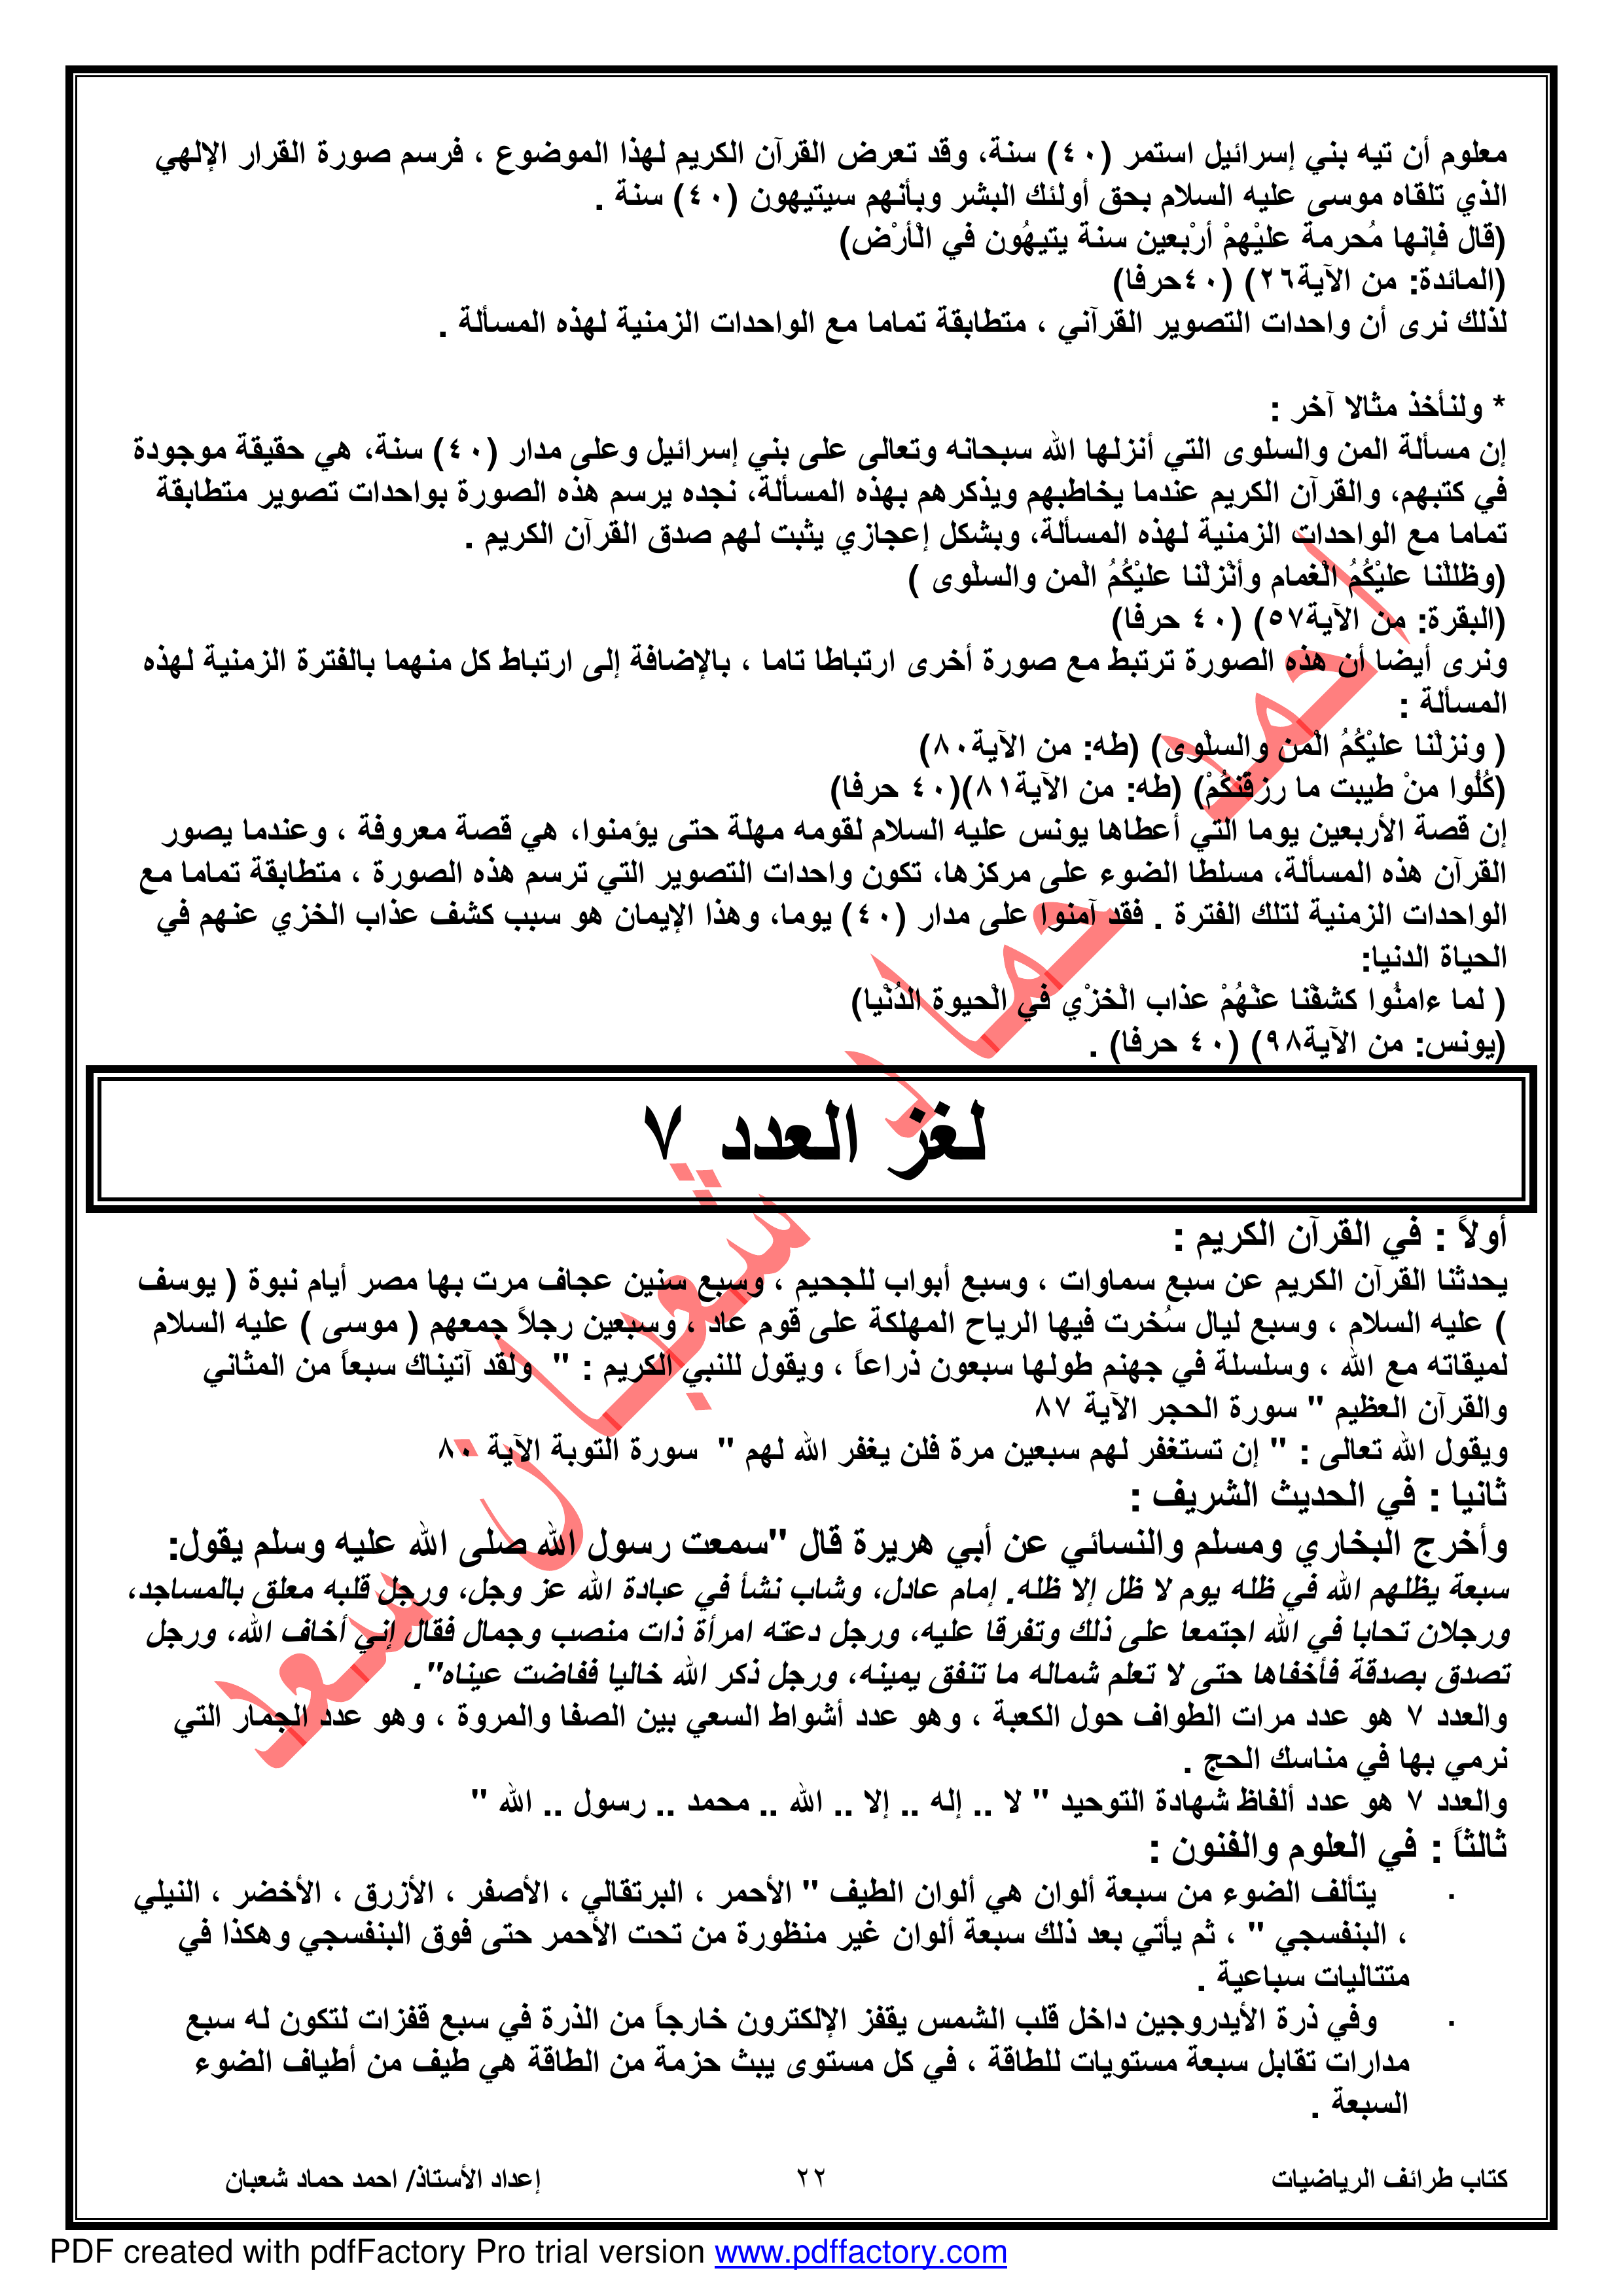 معلوم أن تيه بني إسرائيل استمر (٤٠) سنة، وقد تعرض القرآن الكريم لهذا الموضوع ، فرسم صورة القرار الإلهي
الذي تلقاه موسى عليه السلام بحق أولئك البشر وبأنهم سيتيهون (٤٠) سنة .
(قال فإنها مُحرمة عليْهمْ أرْبعين سنة يتيهُون في الْأرْض)
(المائدة: من الآية٢٦) (٤٠حرفا)
لذلك نرى أن واحدات التصوير القرآني ، متطابقة تماما مع الواحدات الزمنية لهذه المسألة .
* ولنأخذ مثالا آخر :
إن مسألة المن والسلوى التي أنزلها الله سبحانه وتعالى على بني إسرائيل وعلى مدار (٤٠) سنة، هي حقيقة موجودة
في كتبهم، والقرآن الكريم عندما يخاطبهم ويذكرهم بهذه المسألة، نجده يرسم هذه الصورة بواحدات تصوير متطابقة
تماما مع الواحدات الزمنية لهذه المسألة، وبشكل إعجازي يثبت لهم صدق القرآن الكريم .
(وظللْنا عليْكُمُ الْغمام وأنْزلْنا عليْكُمُ الْمن والسلْوى )
(البقرة: من الآية٥٧) (٤٠ حرفا)
ونرى أيضا أن هذه الصورة ترتبط مع صورة أخرى ارتباطا تاما ، بالإضافة إلى ارتباط كل منهما بالفترة الزمنية لهذه
المسألة :
( ونزلْنا عليْكُمُ الْمن والسلْوى) (طه: من الآية٨٠)
(كُلُوا منْ طيبت ما رزقنكُمْ) (طه: من الآية٨١)(٤٠ حرفا)
إن قصة الأربعين يوما التي أعطاها يونس عليه السلام لقومه مهلة حتى يؤمنوا، هي قصة معروفة ، وعندما يصور
القرآن هذه المسألة، مسلطا الضوء على مركزها، تكون واحدات التصوير التي ترسم هذه الصورة ، متطابقة تماما مع
الواحدات الزمنية لتلك الفترة . فقد آمنوا على مدار (٤٠) يوما، وهذا الإيمان هو سبب كشف عذاب الخزي عنهم في
الحياة الدنيا:
( لما ءامنُوا كشفْنا عنْهُمْ عذاب الْخزْي في الْحيوة الدُنْيا)
(يونس: من الآية٩٨) (٤٠ حرفا) .
لغز العدد ٧
أولاً : في القرآن الكريم :
يحدثنا القرآن الكريم عن سبع سماوات ، وسبع أبواب للجحيم ، وسبع سنين عجاف مرت بها مصر أيام نبوة ( يوسف
) عليه السلام ، وسبع ليال سُخرت فيها الرياح المهلكة على قوم عاد ، وسبعين رجلاً جمعهم ( موسى ) عليه السلام
لميقاته مع الله ، وسلسلة في جهنم طولها سبعون ذراعاً ، ويقول للنبي الكريم : " ولقد آتيناك سبعاً من المثاني
والقرآن العظيم " سورة الحجر الآية ٨٧
ويقول الله تعالى : " إن تستغفر لهم سبعين مرة فلن يغفر الله لهم " سورة التوبة الآية ٨٠
ثانيا : في الحديث الشريف :
وأخرج البخاري ومسلم والنسائي عن أبي هريرة قال "سمعت رسول الله صلى الله عليه وسلم يقول:
سبعة يظلهم الله في ظله يوم لا ظل إلا ظله. إمام عادل، وشاب نشأ في عبادة الله عز وجل، ورجل قلبه معلق بالمساجد،
ورجلان تحابا في الله اجتمعا على ذلك وتفرقا عليه، ورجل دعته امرأة ذات منصب وجمال فقال إني أخاف الله، ورجل
تصدق بصدقة فأخفاها حتى لا تعلم شماله ما تنفق يمينه، ورجل ذكر الله خاليا ففاضت عيناه".
والعدد ٧ هو عدد مرات الطواف حول الكعبة ، وهو عدد أشواط السعي بين الصفا والمروة ، وهو عدد الجمار التي
نرمي بها في مناسك الحج .
والعدد ٧ هو عدد ألفاظ شهادة التوحيد " لا .. إله .. إلا .. الله .. محمد .. رسول .. الله "
ثالثاً : في العلوم والفنون :
· يتألف الضوء من سبعة ألوان هي ألوان الطيف " الأحمر ، البرتقالي ، الأصفر ، الأزرق ، الأخضر ، النيلي
، البنفسجي " ، ثم يأتي بعد ذلك سبعة ألوان غير منظورة من تحت الأحمر حتى فوق البنفسجي وهكذا في
متتاليات سباعية .
· وفي ذرة الأيدروجين داخل قلب الشمس يقفز الإلكترون خارجاً من الذرة في سبع قفزات لتكون له سبع
مدارات تقابل سبعة مستويات للطاقة ، في كل مستوى يبث حزمة من الطاقة هي طيف من أطياف الضوء
السبعة .
احمد حماد شعبان سعد
كتاب طرائف الرياضيات ٢٢ إعداد الأستاذ/ احمد حماد شعبان
PDF created with pdfFactory Pro trial version www.pdffactory.com